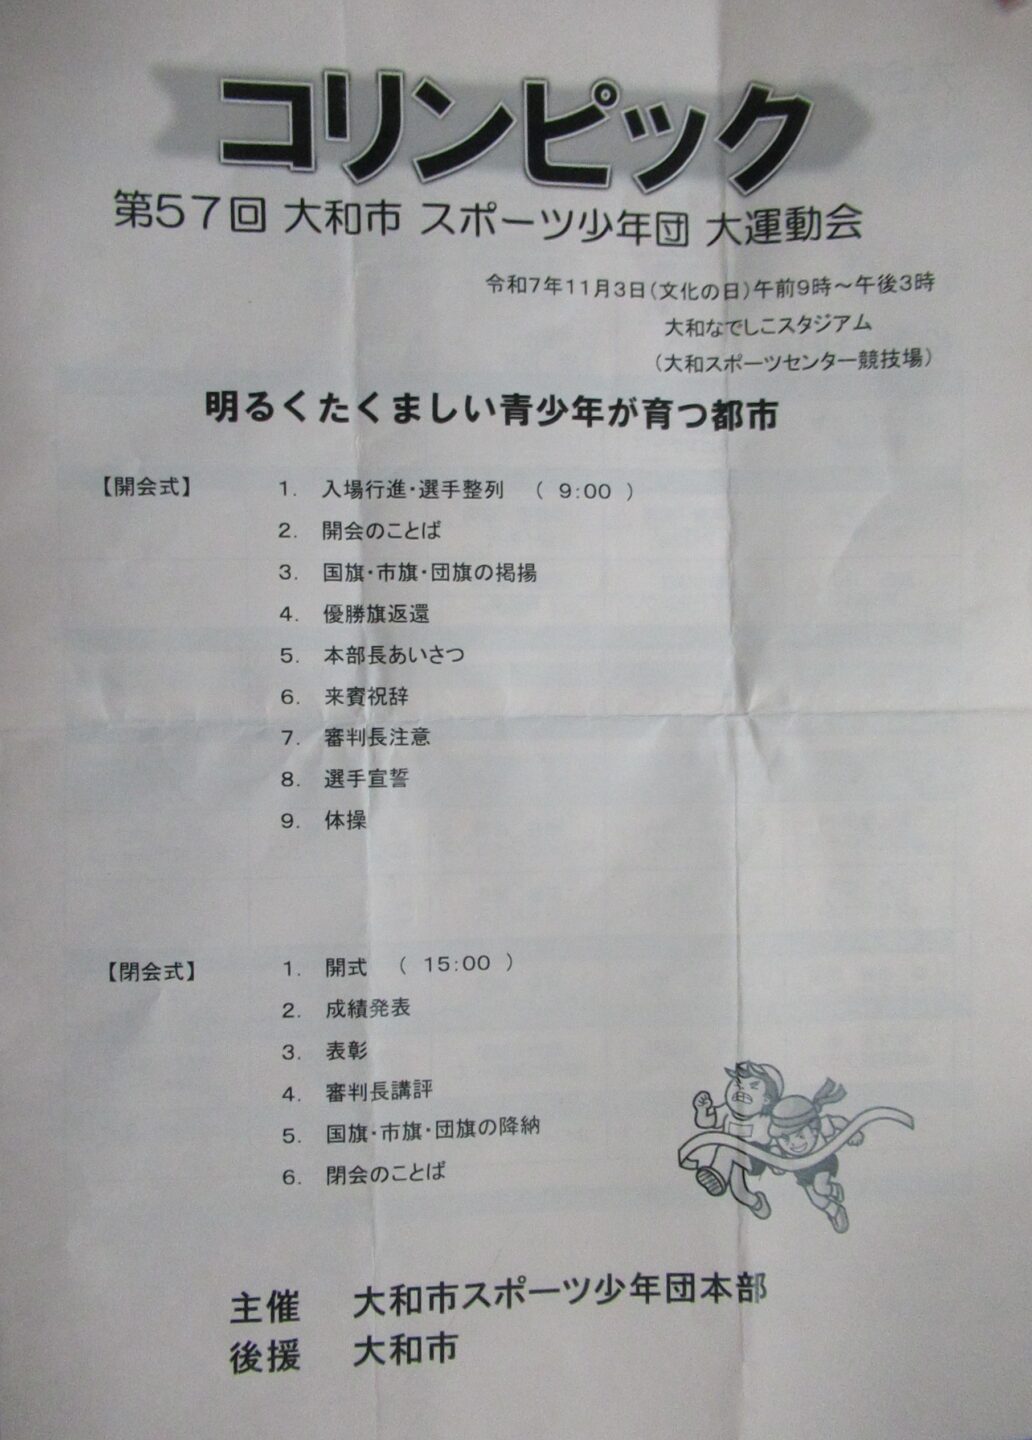 コリンピック
第57回 大和市 スポーツ少年団 大運動会
令和7年11月3日(文化の日)午前9時～午後3時
大和なでしこスタジアム
(大和スポーツセンター競技場)
明るくたくましい青少年が育つ都市
【開会式】 1. 入場行進・選手整列 ( 9:00 )
2. 開会のことば
3. 国旗・市旗・団旗の掲揚
4. 優勝旗返還
5. 本部長あいさつ
6. 来賓祝辞
7. 審判長注意
8. 選手宣誓
9. 体操
【閉会式】 1. 開式 ( 15:00 )
2. 成績発表
3. 表彰
4. 審判長講評
5. 国旗・市旗・団旗の降納
6. 閉会のことば
主催 大和市スポーツ少年団本部
後援 大和市